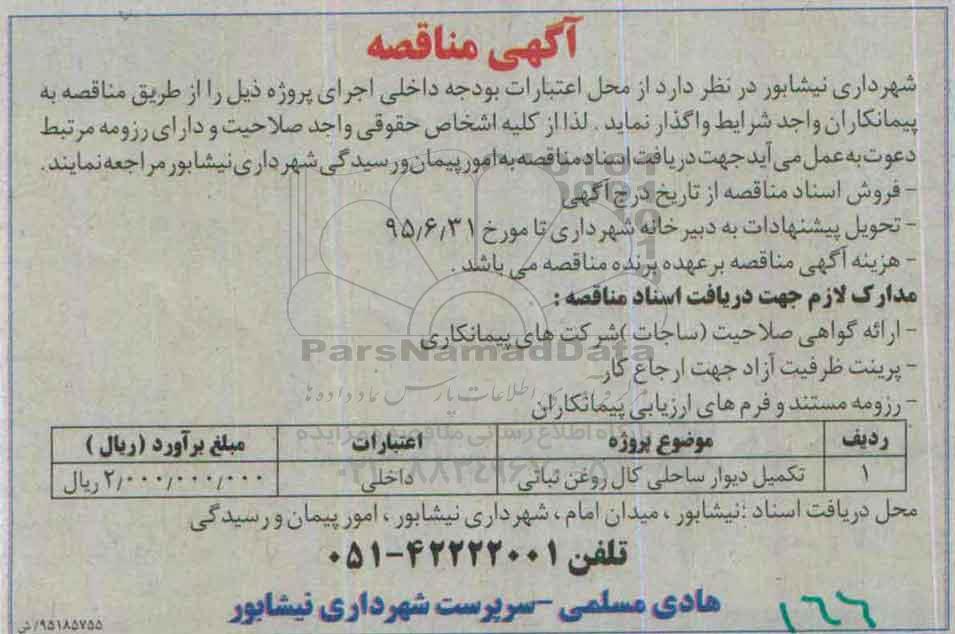 آگهی مناقصه
شهرداری نیشابور در نظر دارد از محل اعتبارات بودجه داخلی اجرای پروژه ذیل را از طریق مناقصه به
پیمانکاران واجد شرایط واگذار نماید . لذا از کلیه اشخاص حقوقی واجد صلاحیت و دارای رزومه مرتبط
دعوت به عمل می آید جهت دریافت اسناد مناقصه به امور پیمان ورسیدگی شهرداری نیشابور مراجعه نمایند .
- فروش اسناد مناقصه از تاریخ درج آگهی
- تحویل پیشنهادات به دبیرخانه شهرداری تا مورخ ۹۵/۶/۳۱
- هزینه آگهی مناقصه بر عهده برنده مناقصه می باشد .
مدارک لازم جهت دریافت اسناد مناقصه :
- ارائه گواهی صلاحیت (ساجات )شرکت های پیمانکاری
ParsNamadData
- پرینت ظرفیت آزاد جهت ارجاع کار
- رزومه مستند و فرم های ارزیابی پیمانکاران
پایگاه اطلاع رسانی مناقصه و مزایده
ردیف موضوع پروژه اعتبارات مبلغ برآورد (ریال )
۱ تکمیل دیوار ساحلی کال روغن نباتی داخلی ۲/۰۰۰/۰۰۰/۰۰۰ ریال
محل دریافت اسناد :نیشابور ، میدان امام ، شهرداری نیشابور ، امور پیمان و رسیدگی
تلفن ۴۲۲۲۲۰۰۱-۰۵۱
هادی مسلمی -سرپرست شهرداری نیشابور
۱۶۶
۹۵۱۸۵۷۵۵/ش